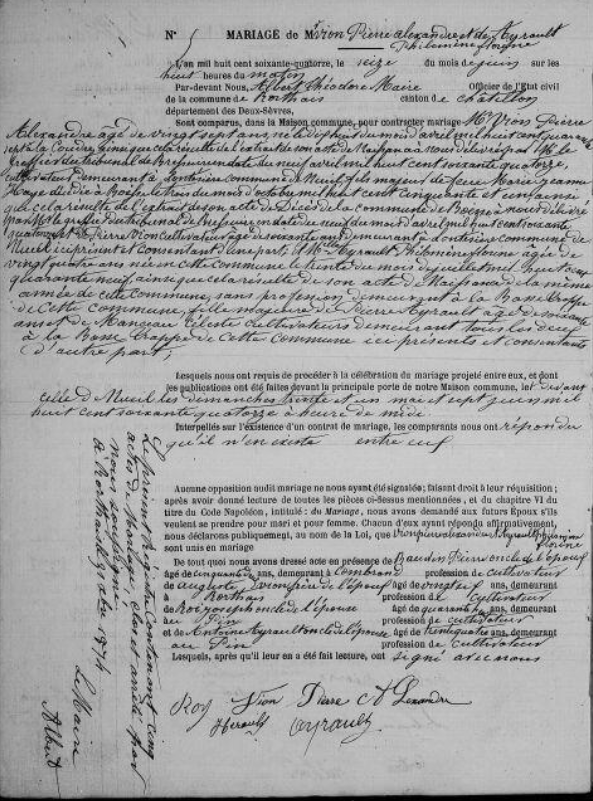 N° 5 MARIAGE de Mr Vion Pierre Alexandre et de Ayrault
Philomène florine
L'an mil huit cent soixante-quatorze, le seize du mois de juin sur les
huit heures du matin
Par-devant Nous, Albert Théodore Maire Officier de l'Etat civil
de la commune de Rorthais canton de châtillon
département des Deux-Sèvres,
Sont comparus, dans la Maison commune, pour contracter mariage Mr Vion Pierre
Alexandre âgé de vingt sept ans, né le dix huit du mois d'avril mil huit cent quarante
sept à la Coudre ainsi que cela résulte de l'extrait de son acte de Naissance à nous délivré par Mr le
greffier du tribunal de Bressuire en date du neuf avril mil huit cent soixante quatorze,
cultivateur demeurant à commune de Nueil, fils majeur de feue Marie Jeanne
décédée à Boësse le trois du mois d'octobre mil huit cent cinquante et un ainsi
que cela résulte de l'extrait de son acte de Décès de la commune de Boesse à nous délivré
par Mr le greffier du tribunal de Bressuire en date du neuf du mois d'avril mil huit cent soixante
quatorze et de Pierre Vion cultivateur âgé de soixante ans demeurant à commune de
Nueil ici présent et consentant d'une part; Et Mlle Ayrault Philomène florine âgée de
vingt quatre ans née en cette commune le trente du mois de juillet mil huit cent
quarante neuf ainsi que cela résulte de son acte de Naissance de la même
année de cette commune, sans profession demeurant à la Basse
de cette commune, fille majeure de Pierre Ayrault âgé de soixante
ans et de Manceau Céleste cultivateurs demeurant tous les deux
à la Basse de cette commune ici présents et consentants
d'autre part;
Lesquels nous ont requis de procéder à la célébration du mariage projeté entre eux, et dont
les publications ont été faites devant la principale porte de notre Maison commune, et devant
celle de Nueil les dimanches trente et un mai et sept juin mil
huit cent soixante quatorze à heure de midi
Interpellés sur l'existence d'un contrat de mariage, les comparants nous ont répondu
qu'il n'en existe entre eux
Aucune opposition audit mariage ne nous ayant été signalée; faisant droit à leur réquisition;
après avoir donné lecture de toutes les pièces ci-dessus mentionnées, et du chapitre VI du
titre du Code Napoléon, intitulé: du Mariage, nous avons demandé aux futurs Époux s'ils
veulent se prendre pour mari et pour femme. Chacun d'eux ayant répondu affirmativement,
nous déclarons publiquement, au nom de la Loi, que Vion pierre alexandre et Ayrault philomène
florine
sont unis en mariage
De tout quoi nous avons dressé acte en présence de Baudin Pierre oncle de l'époux
âgé de cinquante ans, demeurant à Combrand profession de cultivateur
de auguste Vion frère de l'époux âgé de vingt ans, demeurant
à Rorthais profession de cultivateur
de Roi joseph oncle de l'épouse âgé de quarante ans, demeurant
au Pin profession de cultivateur
et de Antoine Ayrault oncle de l'épouse âgé de trente quatre ans, demeurant
au Pin profession de cultivateur
Lesquels, après qu'il leur en a été fait lecture, ont signé avec nous
Roy Vion Pierre Alexandre
Herault Ayrault
Le présent Registre contenant cinq
actes de Mariage, clos et arrêté par
nous soussigné,
à Rorthais 31 Xbre 1874
Le Maire
Albert